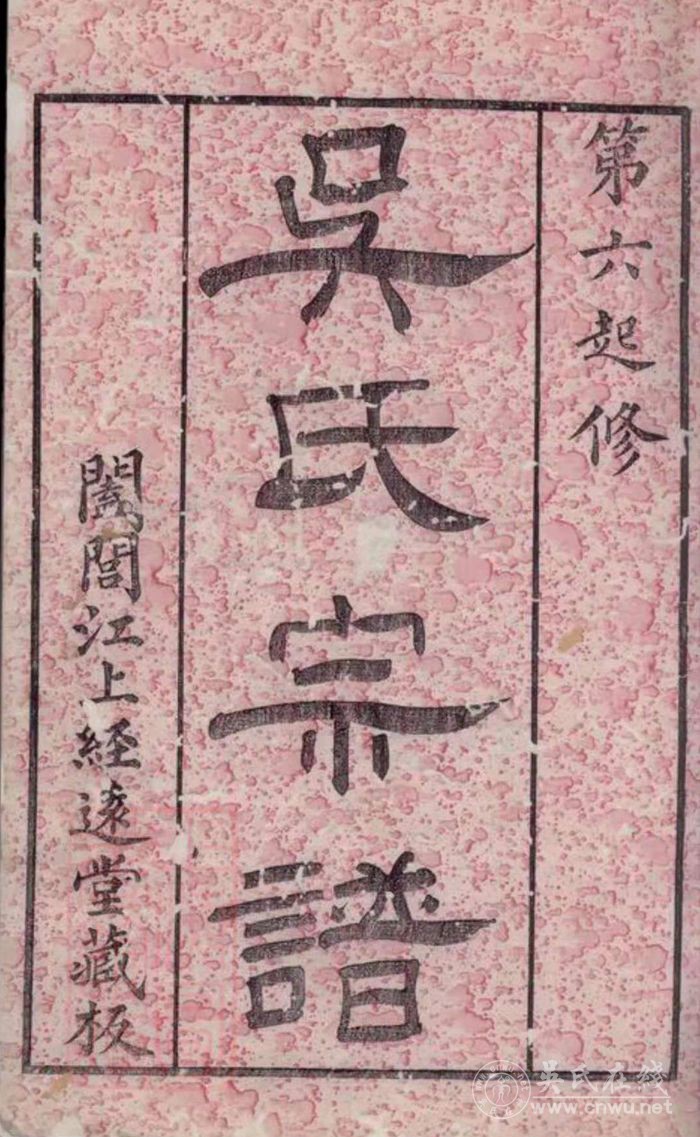 第六起修
吳氏宗譜
闔閭江上経遠堂藏板
吴氏在线
www.cnwu.net